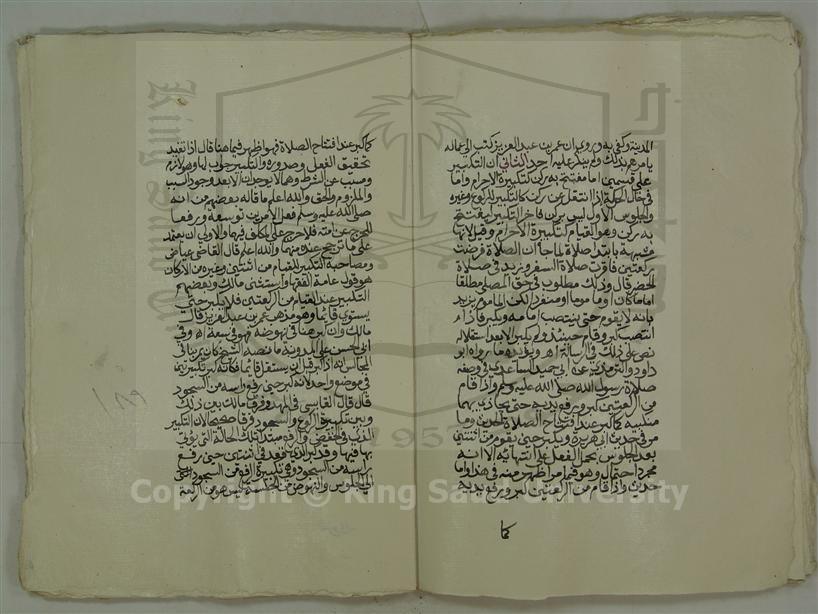 المدينة وكفى به وروي ان عمر بن عبد العزيز كتب الى عماله
يامرهم بذلك ولم ينكر عليه احد الثاني ان التكبير
على قسمين اما مفتتح به ركن كتكبيرة الاحرام واما
في حال الحركة اذا انتقل من ركن كالتكبير للركوع وغيره
والجلوس الاول ليس بركن فاخر التكبير ليفتتح
به ركن وهو القيام كتكبيرة الاحرام وقيل لانها
مشبهة بابتدا صلاة لما جا ان الصلاة فرضت
ركعتين فاقرت صلاة السفر وزيد في صلاة
الحضر قال وذلك مطلوب في حق المصلي مطلقا
اماما كان او ماموما او منفردا لكن الماموم يزيد
بانه لا يقوم حتى ينتصب امامه ويكبر فاذا
انتصب كبر وقام حينئذ ولم يكبر الا بعد استقلاله
نص على ذلك في الرسالة اهـ ويؤيده ما رواه ابو
داود والترمذي عن ابي حميد الساعدي في وصفه
صلاة رسول الله صلى الله عليه وسلم واذا قام
من الركعتين كبر ورفع يديه حتى يحاذي بهما
منكبيه كما كبر عند افتتاح الصلاة الحديث وما
مر في حديث ابي هريرة ويكبر حين يقوم من اثنتين
بعد الجلوس بحمل الفعل على انتهائه الا انه
مجرد احتمال وهو فيما مر اظهر منه في هذا واما
حديث واذا قام من الركعتين كبر ورفع يديه
كما
كما كبر عند افتتاح الصلاة فهو اظهر فيما هنا قال اذا تفيد
تحقيق الفعل وصدوره والتكبير جواب لها وهو لازم
ومسبب عن الشرط وهما لا يوجدان الا بعد وجود السبب
والملزوم والحق والله اعلم ما قاله بعضهم من انه
صلى الله عليه وسلم فعل الامرين توسعة ورفعا
للحرج عن امته فلا حرج على مكلف فيهما والاولى ان يعتمد
على ما ترجح عنده منهما والله اعلم قال القاضي عياض
ومصاحبة التكبير للقيام من اثنتين وغيره من الاركان
هو قول عامة الفقهاء واستثنى مالك وبعضهم
التكبير عند القيام من الركعتين فلا يكبر حتى
يستوي قائما وهو مذهب عمر بن عبد العزيز قال
مالك وان كبر هنا في نهوضه فهو في سعة اهـ وفي
ابي الحسن على المدونة ما نصه الشيخ كان يمر بنا في
المجالس انه اذا كبر قبل ان يستقل قائما فكانه كبر تكبيرتين
في موضع واحد لانه كبر حين رفع راسه من السجود
قال قال القابسي في الممهد وفرق مالك بين ذلك
وبين تكبيرة الركوع والسجود فرقا صحيحا لان التكبير
الذي في الخفض والرفع مبتدا تلك الحالة التي يؤتى
بها فيها وقد كبر الذي قعد في اثنتين حين رفع
راسه من السجود وهي تكبيرة الرفع من السجود
الى الجلوس والنهوض من الجلسة ليس هو من الرفع
١٨٩
Copyright © King Saud University
King Saud
1957